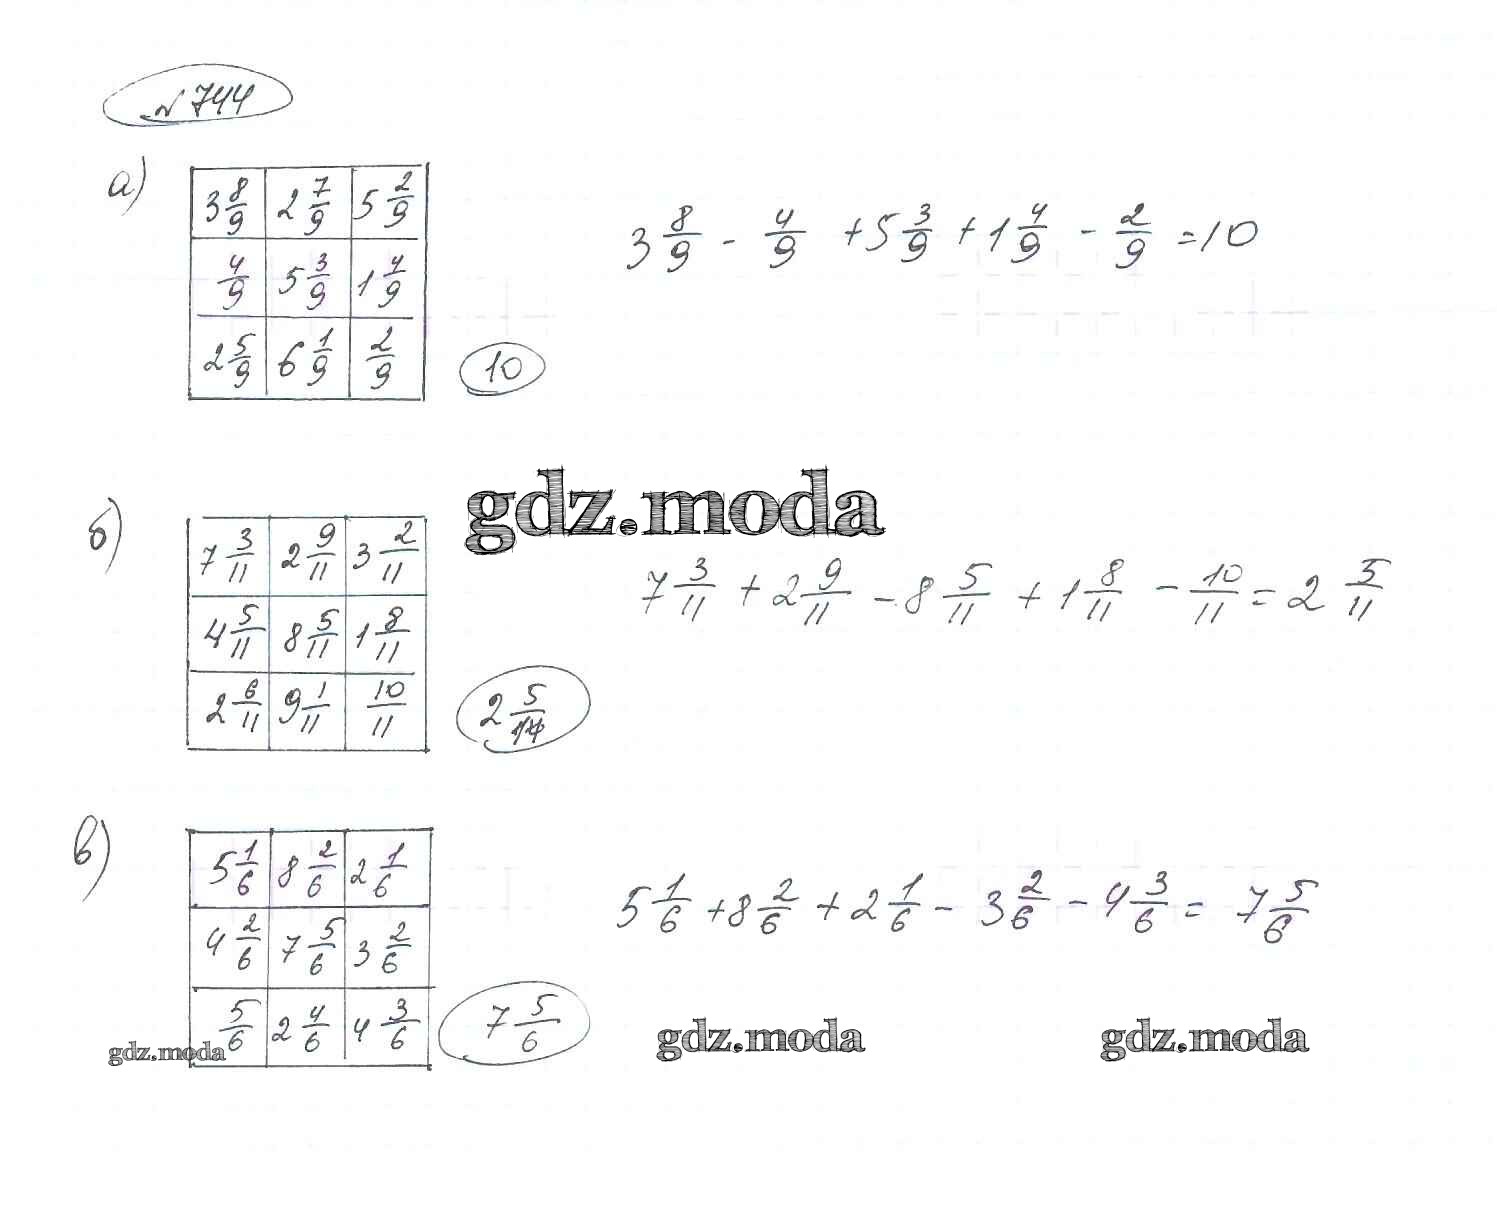 № 744
а)
3 8/9 | 2 7/9 | 5 2/9
4/9 | 5 3/9 | 1 4/9
2 5/9 | 6 1/9 | 2/9
10
3 8/9 - 4/9 + 5 3/9 + 1 4/9 - 2/9 = 10
gdz.moda
б)
7 3/11 | 2 9/11 | 3 2/11
4 5/11 | 8 5/11 | 1 8/11
2 6/11 | 9 1/11 | 10/11
7 3/11 + 2 9/11 - 8 5/11 + 1 8/11 - 10/11 = 2 5/11
в)
5 1/6 | 8 2/6 | 2 1/6
4 2/6 | 7 5/6 | 3 2/6
5/6 | 2 4/6 | 4 3/6
7 5/6
5 1/6 + 8 2/6 + 2 1/6 - 3 2/6 - 4 3/6 = 7 5/6
gdz.moda
gdz.moda
gdz.moda